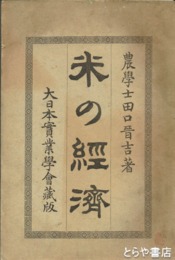 農學士田口晋吉著
米の經濟
大日本實業學會藏版
とらや書店